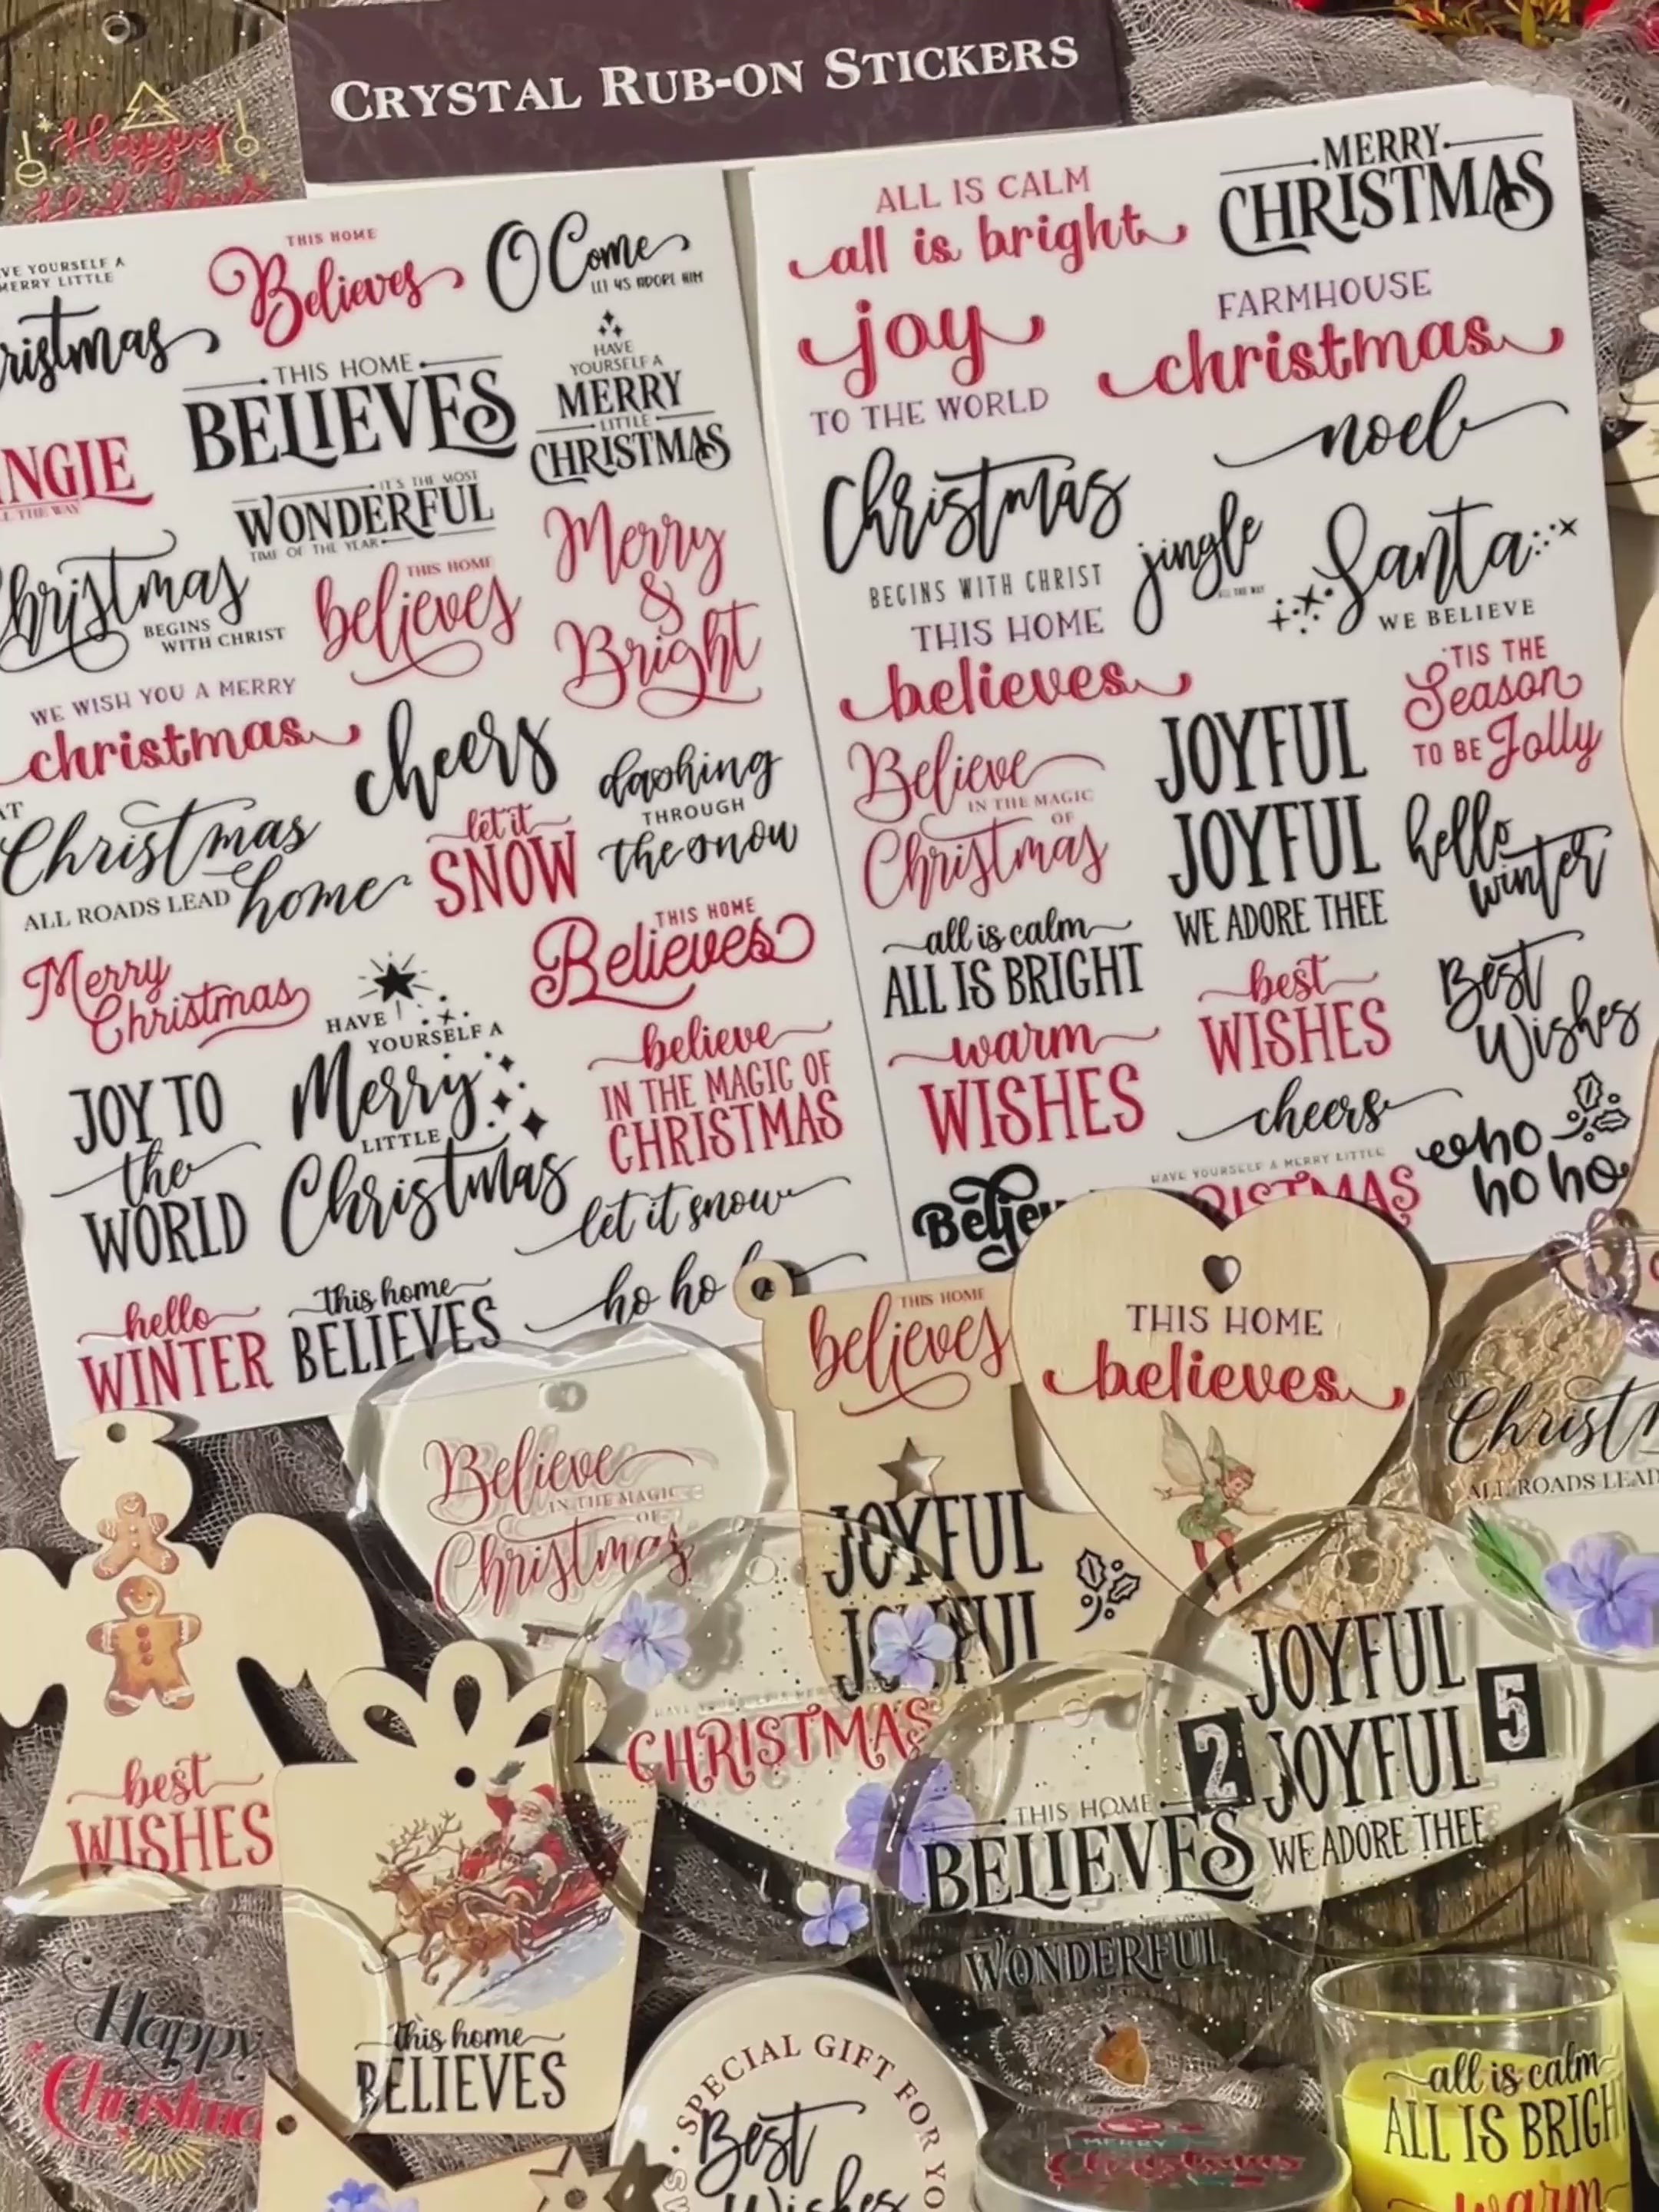 CRYSTAL RUB-ON STICKERS
Happy
Holidays
VE YOURSELF A
MERRY LITTLE
ristmas
THIS HOME
Believes
O Come
LET US ADORE HIM
THIS HOME
BELIEVES
HAVE
YOURSELF A
MERRY
LITTLE
CHRISTMAS
NGLE
THE WAY
IT'S THE MOST
WONDERFUL
TIME OF THE YEAR
Christmas
BEGINS
WITH CHRIST
THIS HOME
believes
Merry
&
Bright
WE WISH YOU A MERRY
christmas
cheers
dashing
THROUGH
the snow
AT
Christmas
ALL ROADS LEAD home
let it
SNOW
Merry
Christmas
HAVE
YOURSELF A
Merry
LITTLE
Christmas
THIS HOME
Believes
believe
IN THE MAGIC OF
CHRISTMAS
JOY TO
the
WORLD
let it snow
ho ho
hello
WINTER
this home
BELIEVES
ALL IS CALM
all is bright
MERRY
CHRISTMAS
joy
TO THE WORLD
FARMHOUSE
christmas
noel
Christmas
BEGINS WITH CHRIST
jingle
ALL THE WAY
Santa
WE BELIEVE
THIS HOME
believes
'TIS THE
Season
TO BE Jolly
Believe
IN THE MAGIC
OF
Christmas
JOYFUL
JOYFUL
WE ADORE THEE
hello
winter
all is calm
ALL IS BRIGHT
best
WISHES
Best
Wishes
warm
WISHES
cheers
ho
ho ho
Believ
HAVE YOURSELF A MERRY LITTLE
RISTMAS
THIS HOME
believes
JOYFUL
JOYFUL
THIS HOME
believes
AT
Christm
ALL ROADS LEAD
Believe
IN THE MAGIC
OF
Christmas
best
WISHES
CHRISTMAS
JOYFUL
2 JOYFUL 5
WE ADORE THEE
THIS HOME
BELIEVES
WONDERFUL
this home
BELIEVES
Happy
Christmas
SPECIAL GIFT FOR YO
Best
Wishes
MERRY
Christmas
all is calm
ALL IS BRIGH
warm